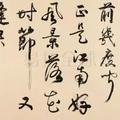 前幾度聞
正是江南好
風景落花
時節又